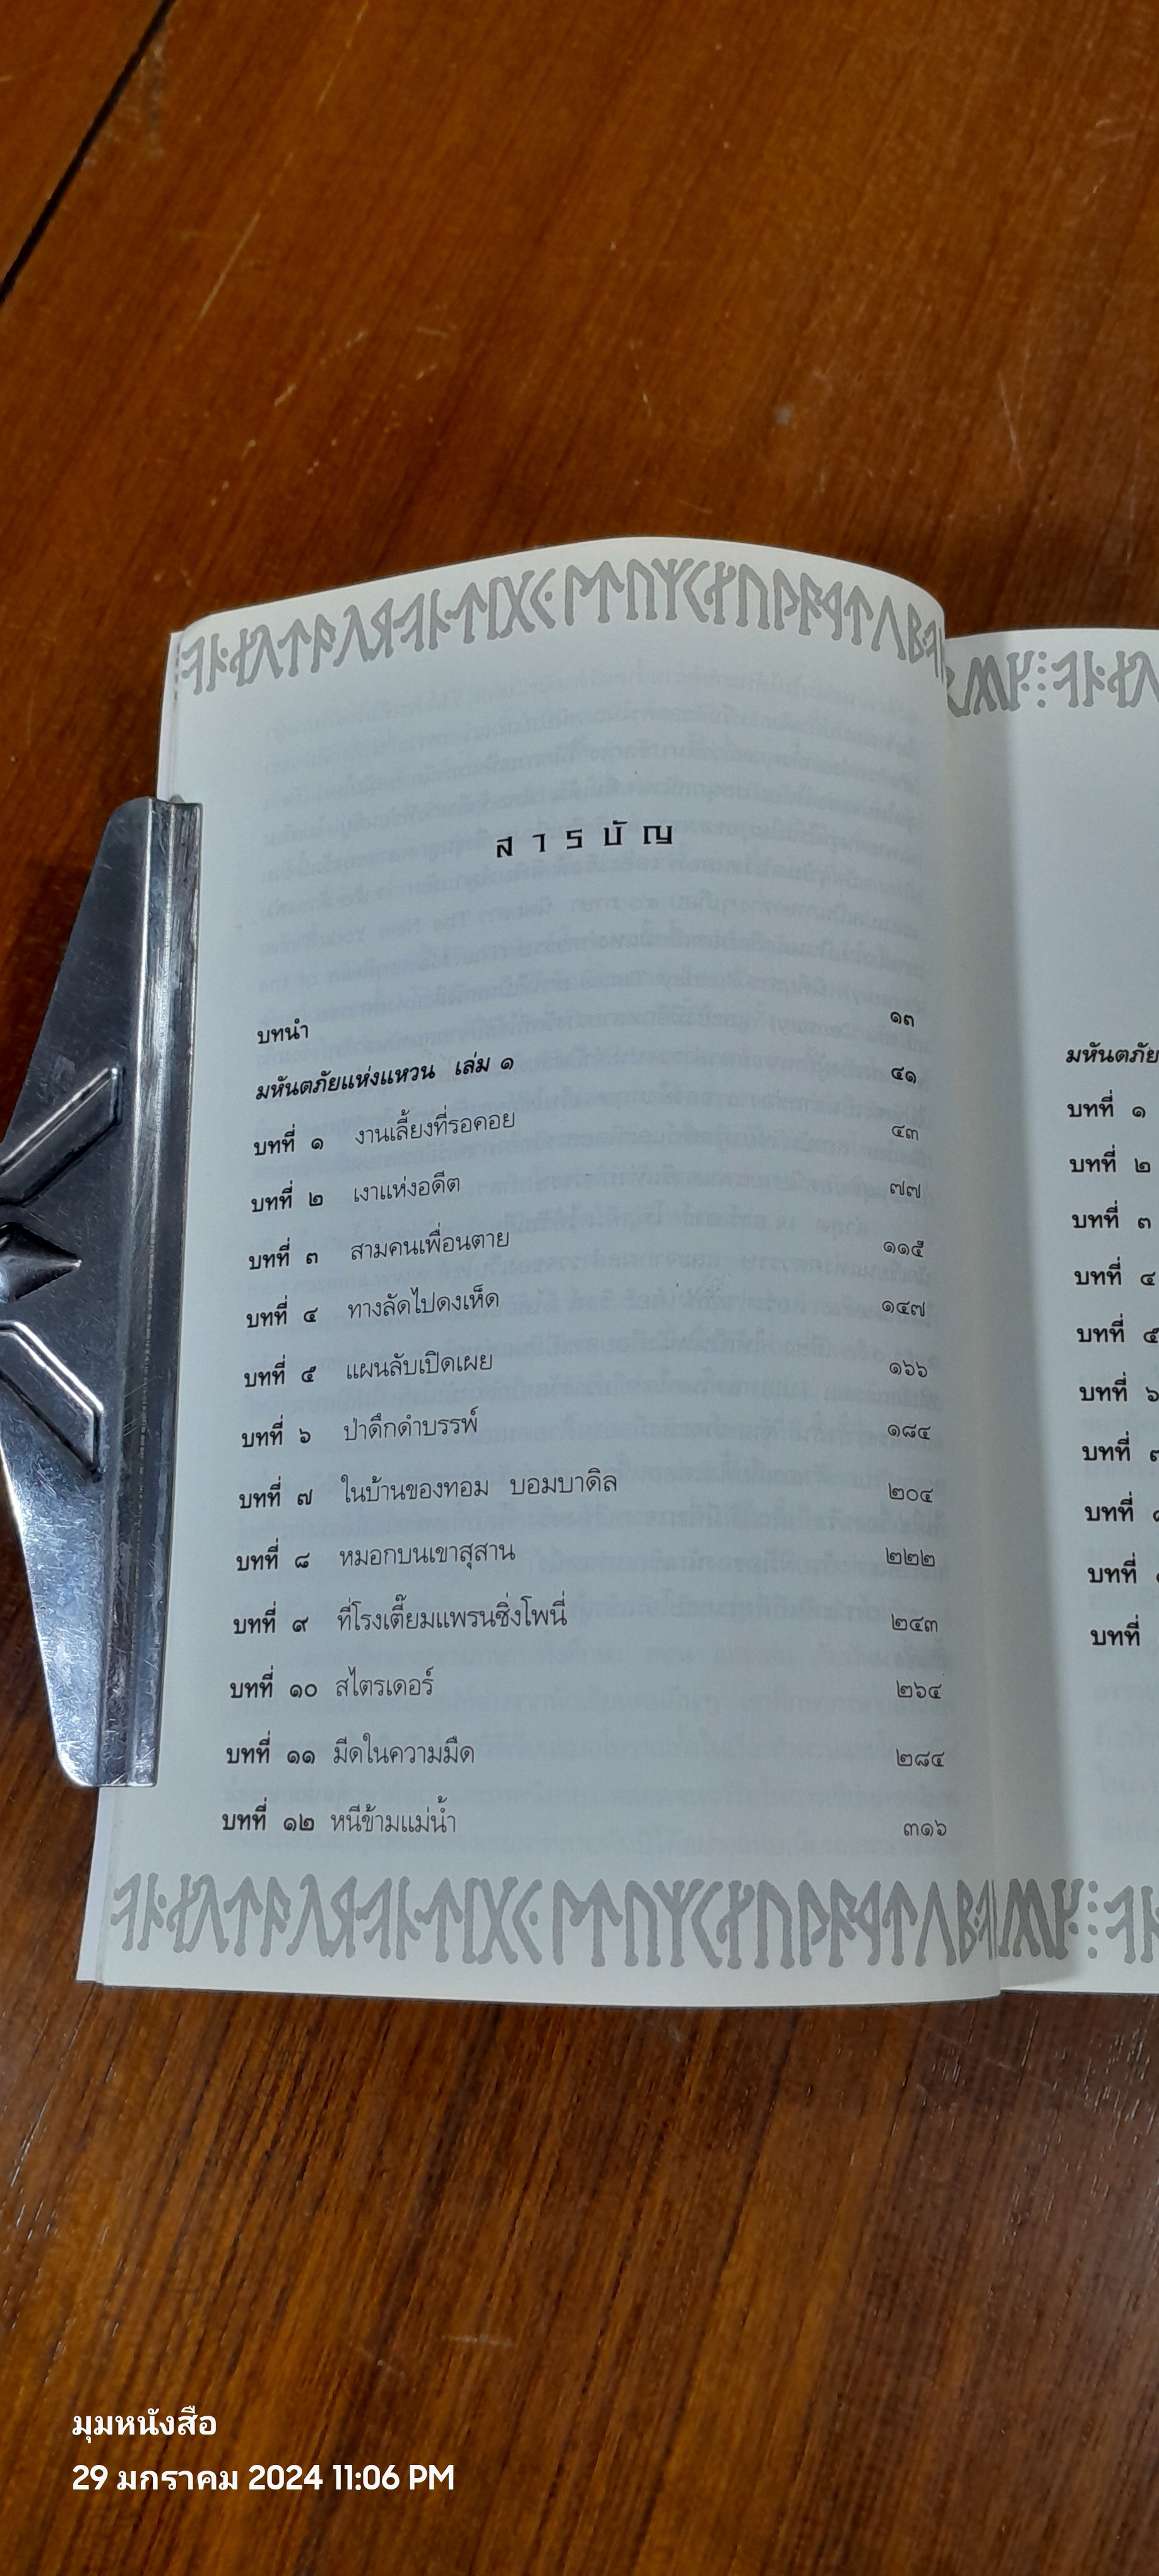 สารบัญ
บทนำ ๑๓
มหันตภัยแห่งแหวน เล่ม ๑ ๔๑
บทที่ ๑ งานเลี้ยงที่รอคอย ๔๓
บทที่ ๒ เงาแห่งอดีต ๗๗
บทที่ ๓ สามคนเพื่อนตาย ๑๑๕
บทที่ ๔ ทางลัดไปดงเห็ด ๑๔๗
บทที่ ๕ แผนลับเปิดเผย ๑๖๖
บทที่ ๖ ป่าดึกดำบรรพ์ ๑๘๔
บทที่ ๗ ในบ้านของทอม บอมบาดิล ๒๐๔
บทที่ ๘ หมอกบนเขาสุสาน ๒๒๒
บทที่ ๙ ที่โรงเตี๊ยมแพรนซิ่งโพนี่ ๒๔๓
บทที่ ๑๐ สไตรเดอร์ ๒๖๔
บทที่ ๑๑ มีดในความมืด ๒๘๔
บทที่ ๑๒ หนีข้ามแม่น้ำ ๓๑๖
มหันตภัย
บทที่ ๑
บทที่ ๒
บทที่ ๓
บทที่ ๔
บทที่ ๕
บทที่ ๖
บทที่ ๗
บทที่
บทที่
บทที่
มุมหนังสือ
29 มกราคม 2024 11:06 PM